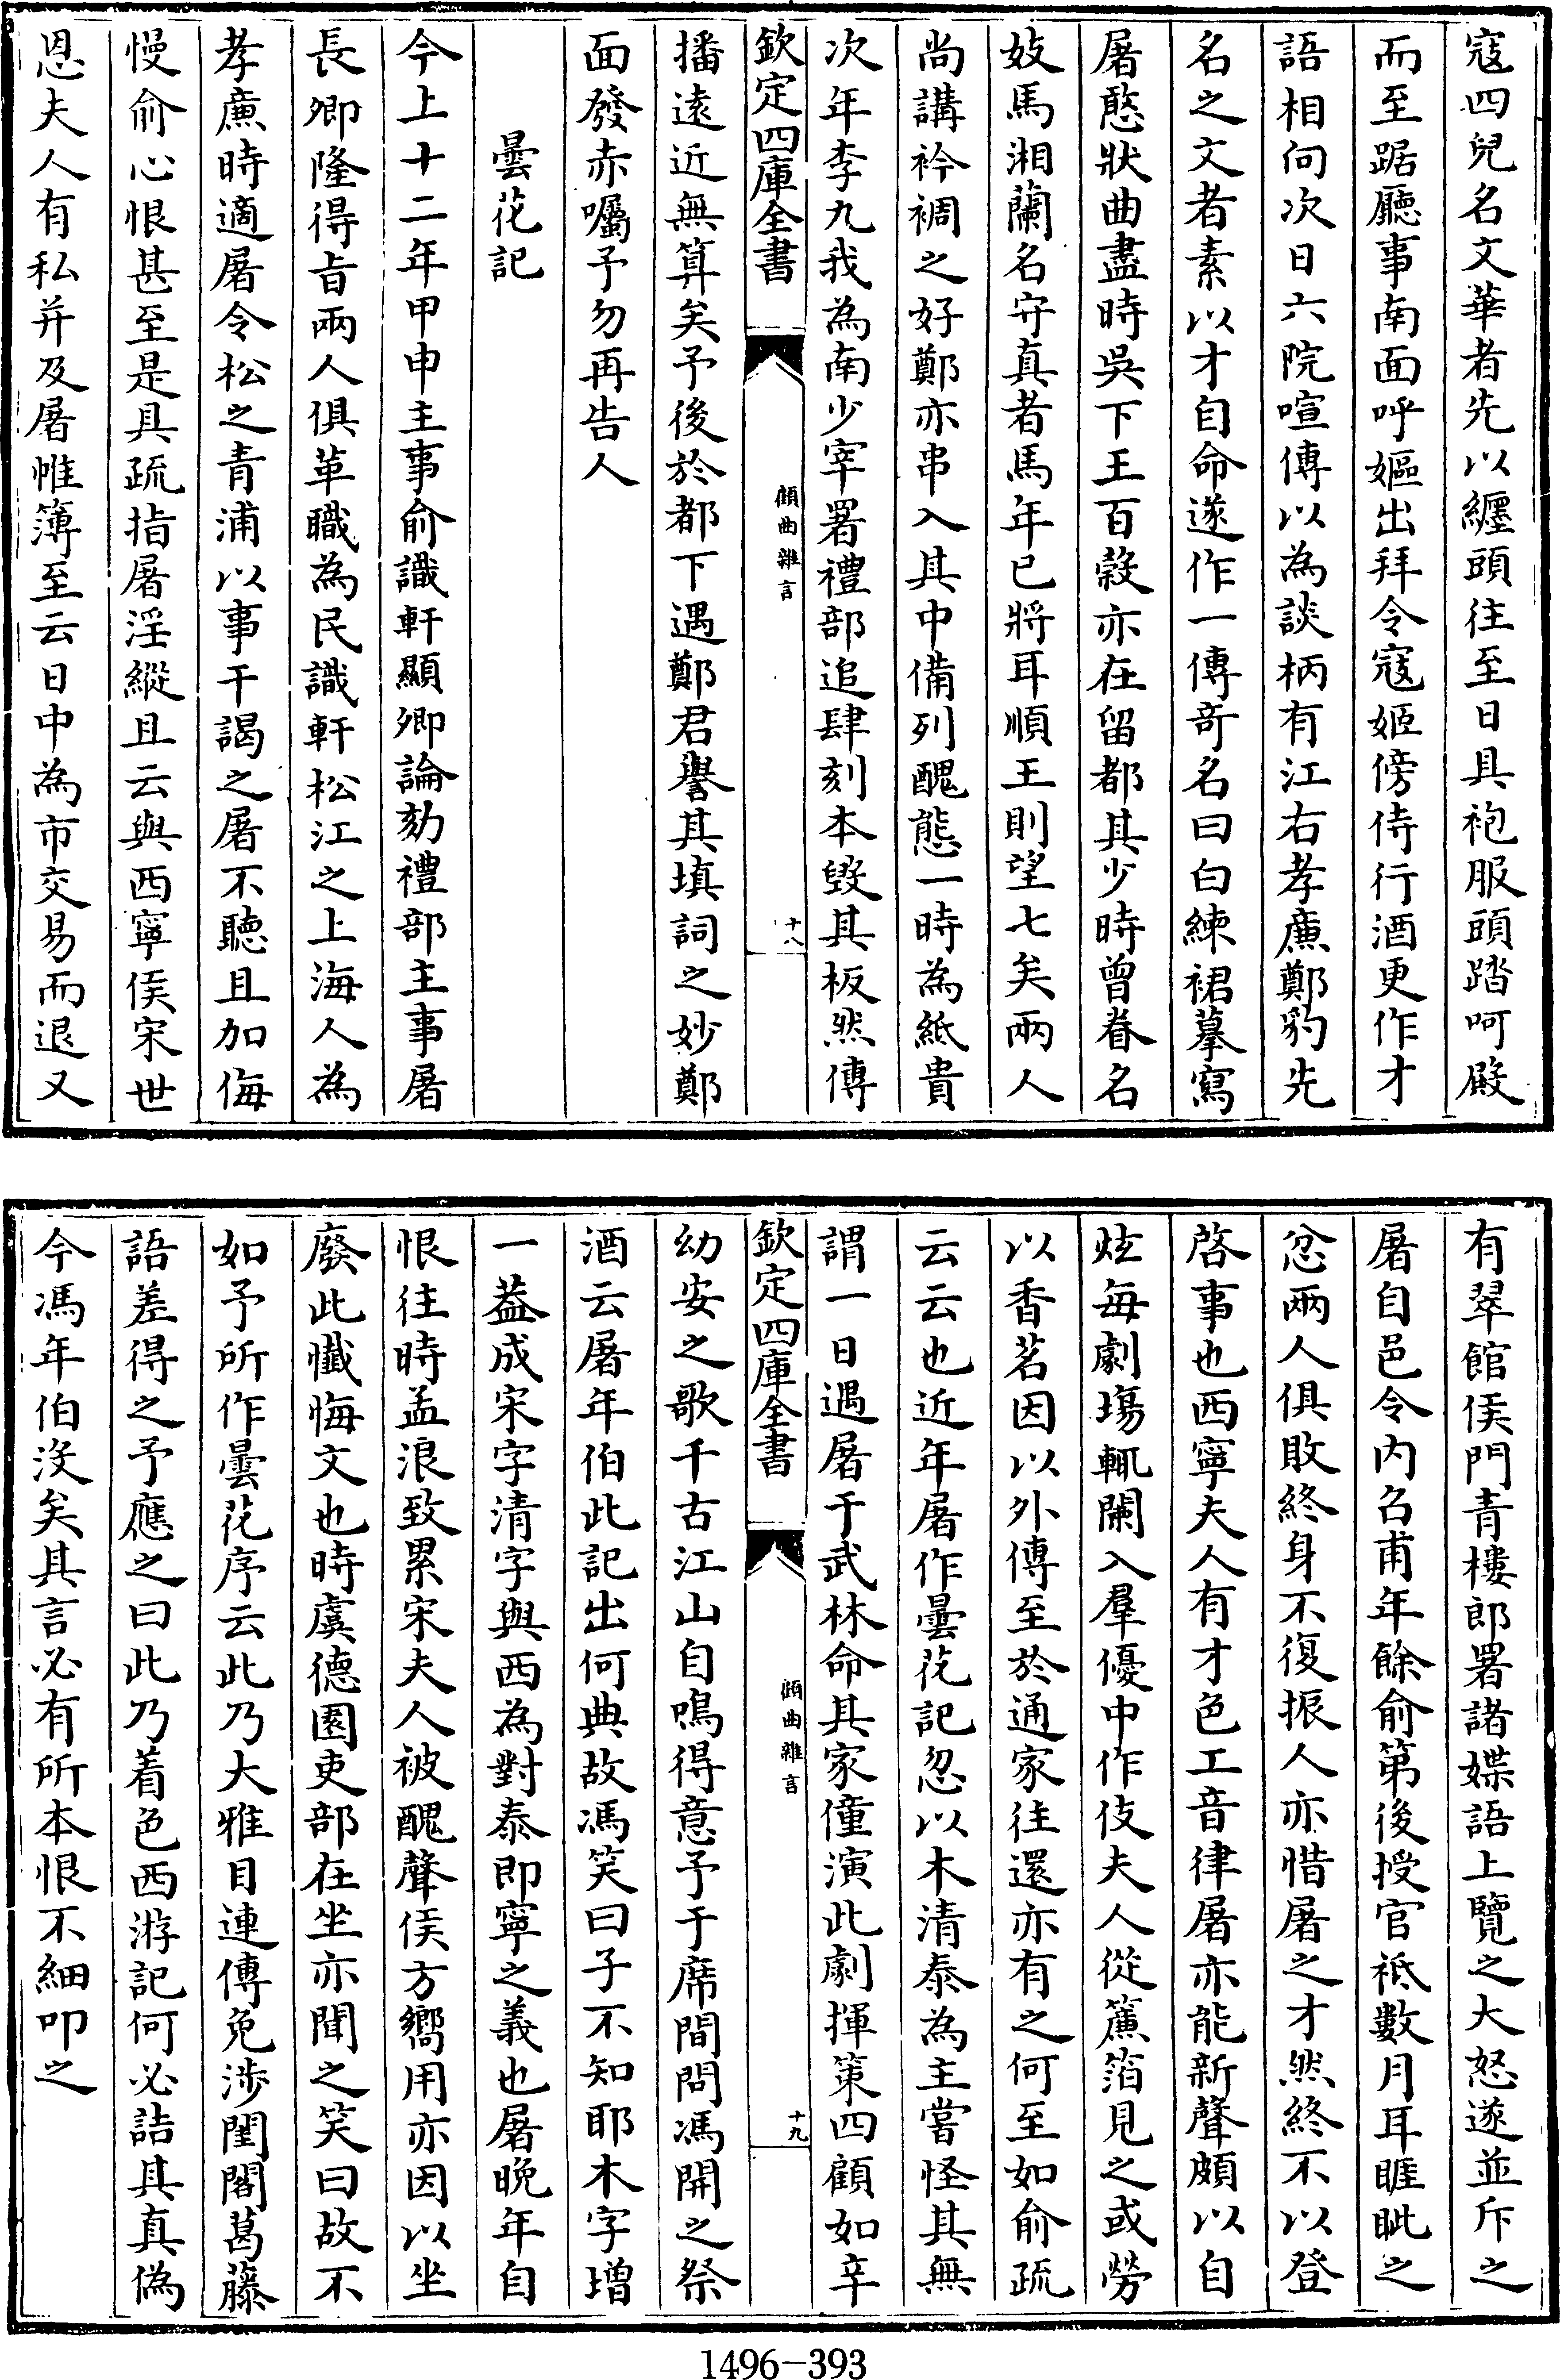 寇四兒名文華者先以纒頭往至日具袍服頭踏呵殿
而至踞廳事南面呼嫗出拜令寇姬傍侍行酒更作才
語相向次日六院喧傳以為談柄有江右孝廉鄭豹先
名之文者素以才自命遂作一傳竒名曰白練裙摹寫
屠憨狀曲盡時吳下王百穀亦在留都其少時曽眷名
妓馬湘蘭名守真者馬年已將耳順王則望七矣兩人
尚講衿裯之好鄭亦串入其中備列醜態一時為紙貴
次年李九我為南少宰署禮部追肆刻本毁其板然傳
欽定四庫全書
顧曲雜言
十八
播逺近無算矣予後於都下遇鄭君譽其填詞之妙鄭
面發赤囑予勿再告人
曇花記
今上十二年甲申主事俞識軒顯卿論劾禮部主事屠
長卿隆得㫖兩人俱革職為民識軒松江之上海人為
孝廉時適屠令松之青浦以事干謁之屠不聽且加侮
慢俞心恨甚至是具疏指屠淫縱且云與西寧侯宋世
恩夫人有私并及屠帷簿至云日中為市交易而退又
有翠館侯門青樓郎署諸媟語上覽之大怒遂並斥之
屠自邑令内召甫年餘俞第後授官祗數月耳睚眦之
忿兩人俱敗終身不復振人亦惜屠之才然終不以登
啓事也西寧夫人有才色工音律屠亦能新聲頗以自
炫每劇塲輒闌入羣優中作伎夫人從簾箔見之或勞
以香茗因以外傳至於通家往還亦有之何至如俞疏
云云也近年屠作曇花記忽以木清泰為主嘗怪其無
謂一日遇屠于武林命其家僮演此劇揮策四顧如辛
欽定四庫全書
顧曲雜言
十九
幼安之歌千古江山自鳴得意予于席間問馮開之祭
酒云屠年伯此記出何典故馮笑曰子不知耶木字增
一葢成宋字清字與西為對泰即寧之義也屠晚年自
恨往時孟浪致累宋夫人被醜聲侯方嚮用亦因以坐
廢此懺悔文也時虞德園吏部在坐亦聞之笑曰故不
如予所作曇花序云此乃大雅目連傳免涉閨閣葛藤
語差得之予應之曰此乃着色西游記何必詰其真偽
今馮年伯没矣其言必有所本恨不細叩之
1496-393